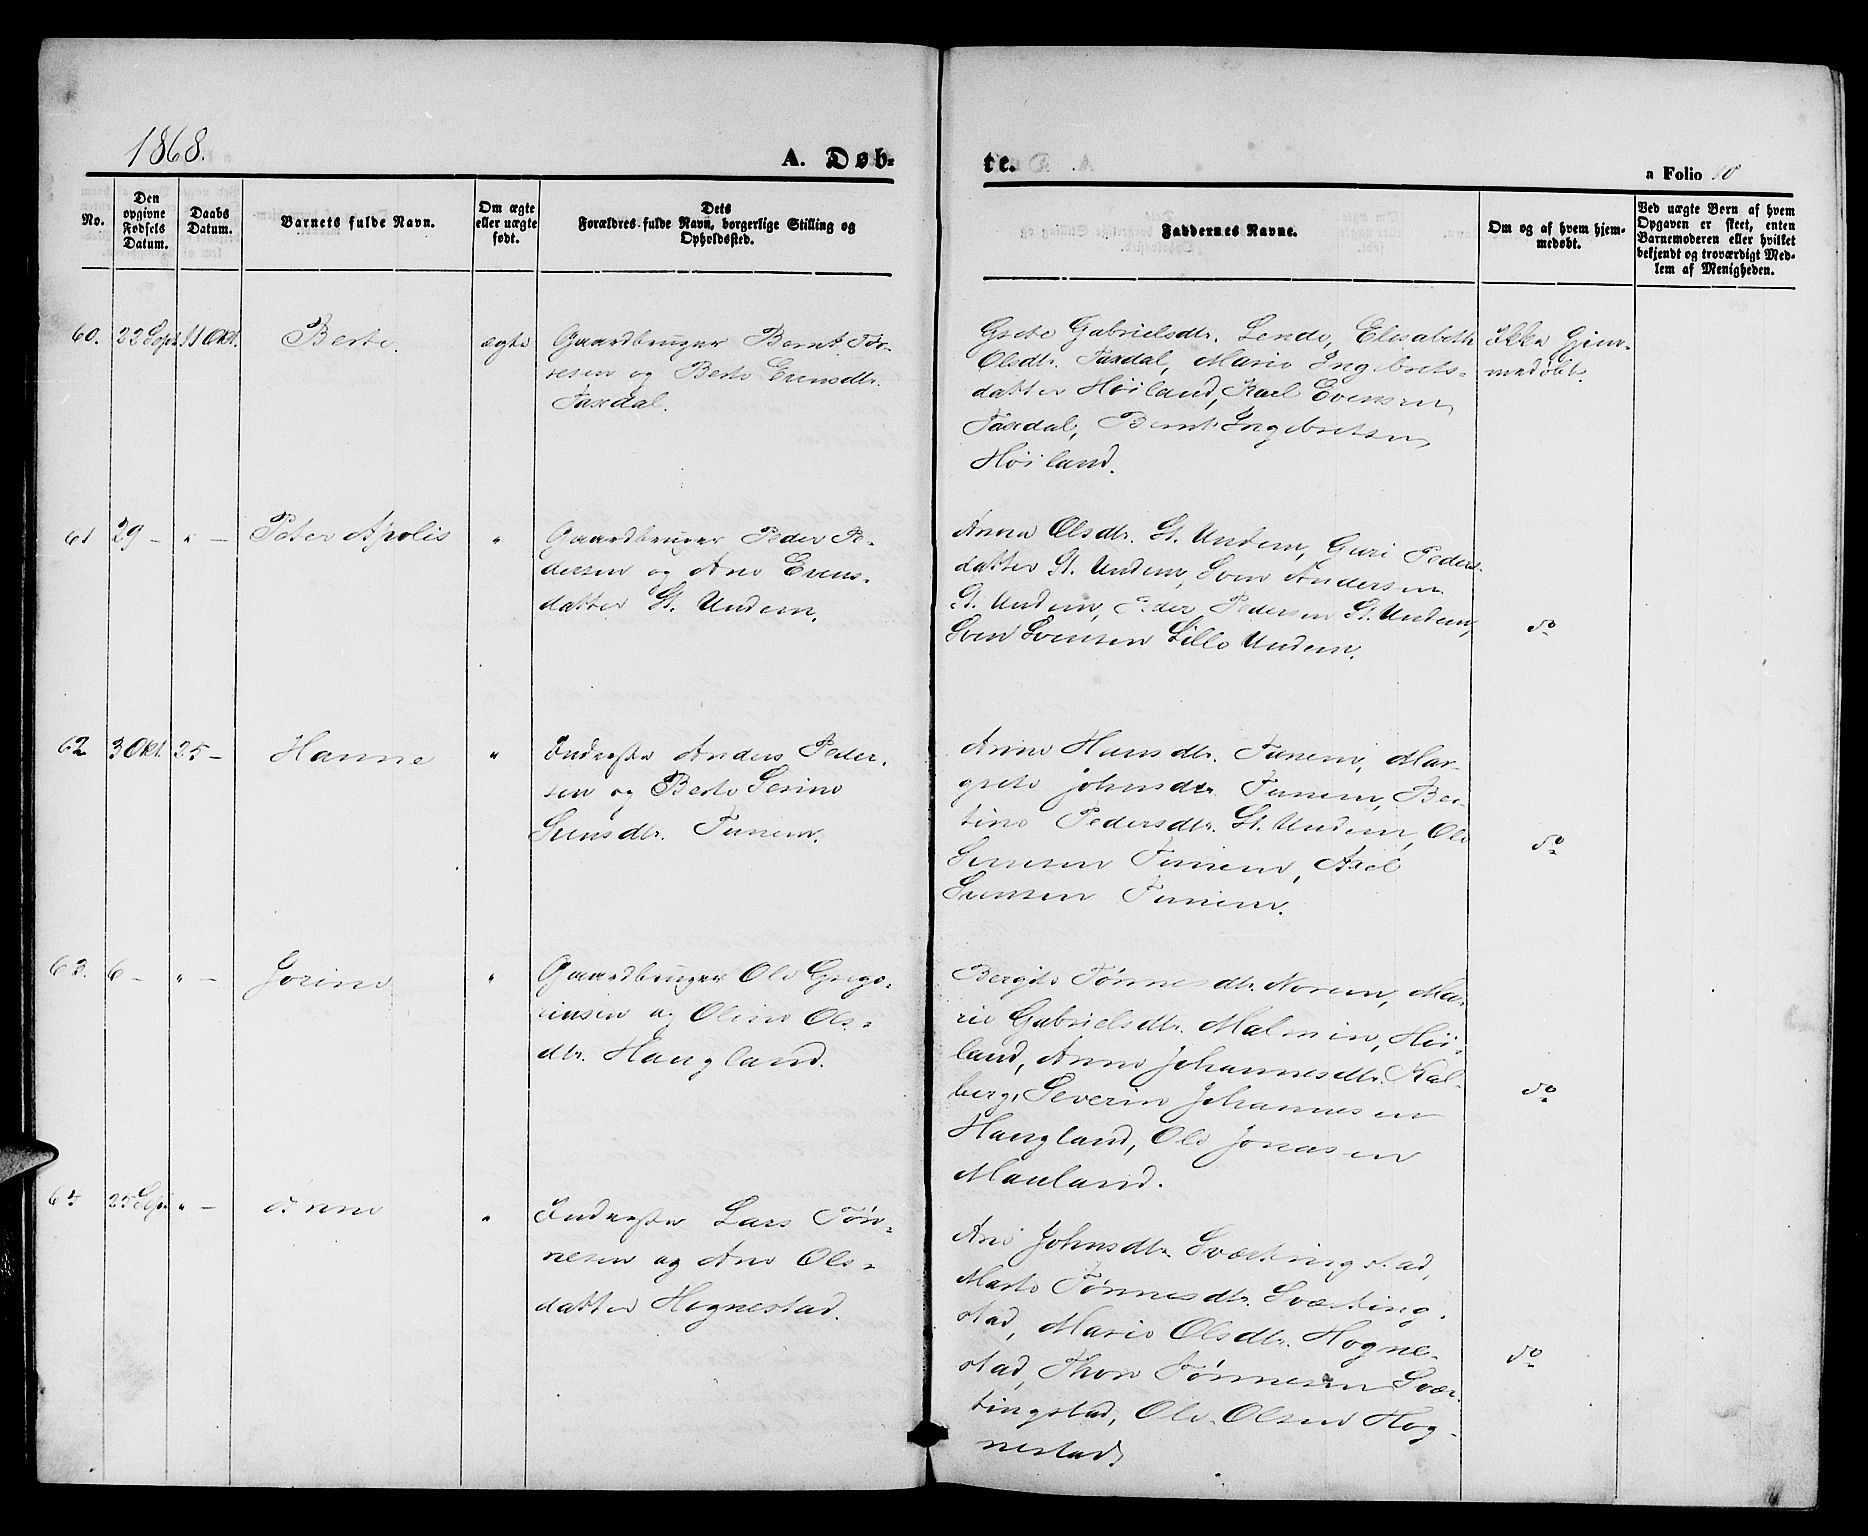 1868.
A. Døb-
te.
a Folio 10
No.
Den opgivne Fødsels Datum.
Daabs Datum.
Barnets fulde Navn.
Om ægte eller uægte født.
Dets Forældres fulde Navn, borgerlige Stilling og Opholdssted.
Faddernes Navne.
Om og af hvem hjem-
medøbt.
Ved uægte Børn af hvem
Opgaven er skeet, enten
Barnemoderen eller hvilket
bekjendt og troværdigt Med-
lem af Menigheden.
60. 22 Sept. 11 Okt. Berte. ægte
Gaardbruger Bernt Tør-
resen og Berte Evensdtr.
Taxdal.
Grete Gabrielsdtr. Lende, Elisabeth
Olsdtr. Taxdal, Marie Ingebrets-
datter Høiland, Karl Evensen
Taxdal, Bernt Ingebretsen
Høiland.
Ikke Hjem-
medøbt.
61 29 - " - Peter Apolis "
Gaardbruger Peder Pe-
dersen og Ane Evens-
datter St. Undem.
Anna Olsdtr. St. Undem, Guri Peders-
datter St. Undem, Sven Andersen
St. Undem, Peder Pedersen St. Undem,
Sven Svensen Lille Undem.
do
62 3 Okt. 25 - Hanne "
Inderste Anders Peder-
sen og Berte Serine
Sunsdtr. Tunem.
Anne Hansdtr. Tunem, Mar-
grete Johnsdtr. Tunem, Ber-
tine Pedersdtr. St. Undem, Ole
Tunem, Axel
Sunsen Tunem.
do
63. 6 - " - Jorine "
Gaardbruger Ole Grego-
riusen og Oline Ols-
dtr. Haugland.
Bergite Tønnesdtr. Norem, Ma-
rie Gabrielsdtr. Malmin, Høi-
land, Anne Johannesdtr. Kal-
berg, Severin Johannesen
Haugland, Ole Jonasen
Mauland.
do
64 25 Sept. " - Anne "
Inderste Lars Tøn-
nesen og Ane Ols-
datter Hognestad.
Ane Johnsdtr. Sværtingstad,
Marte Tønnesdtr. Sværting-
stad, Marie Olsdtr. Hogne-
stad, Thore Tønnesen Svær-
tingstad, Ole Olsen Hog-
nestad.
do